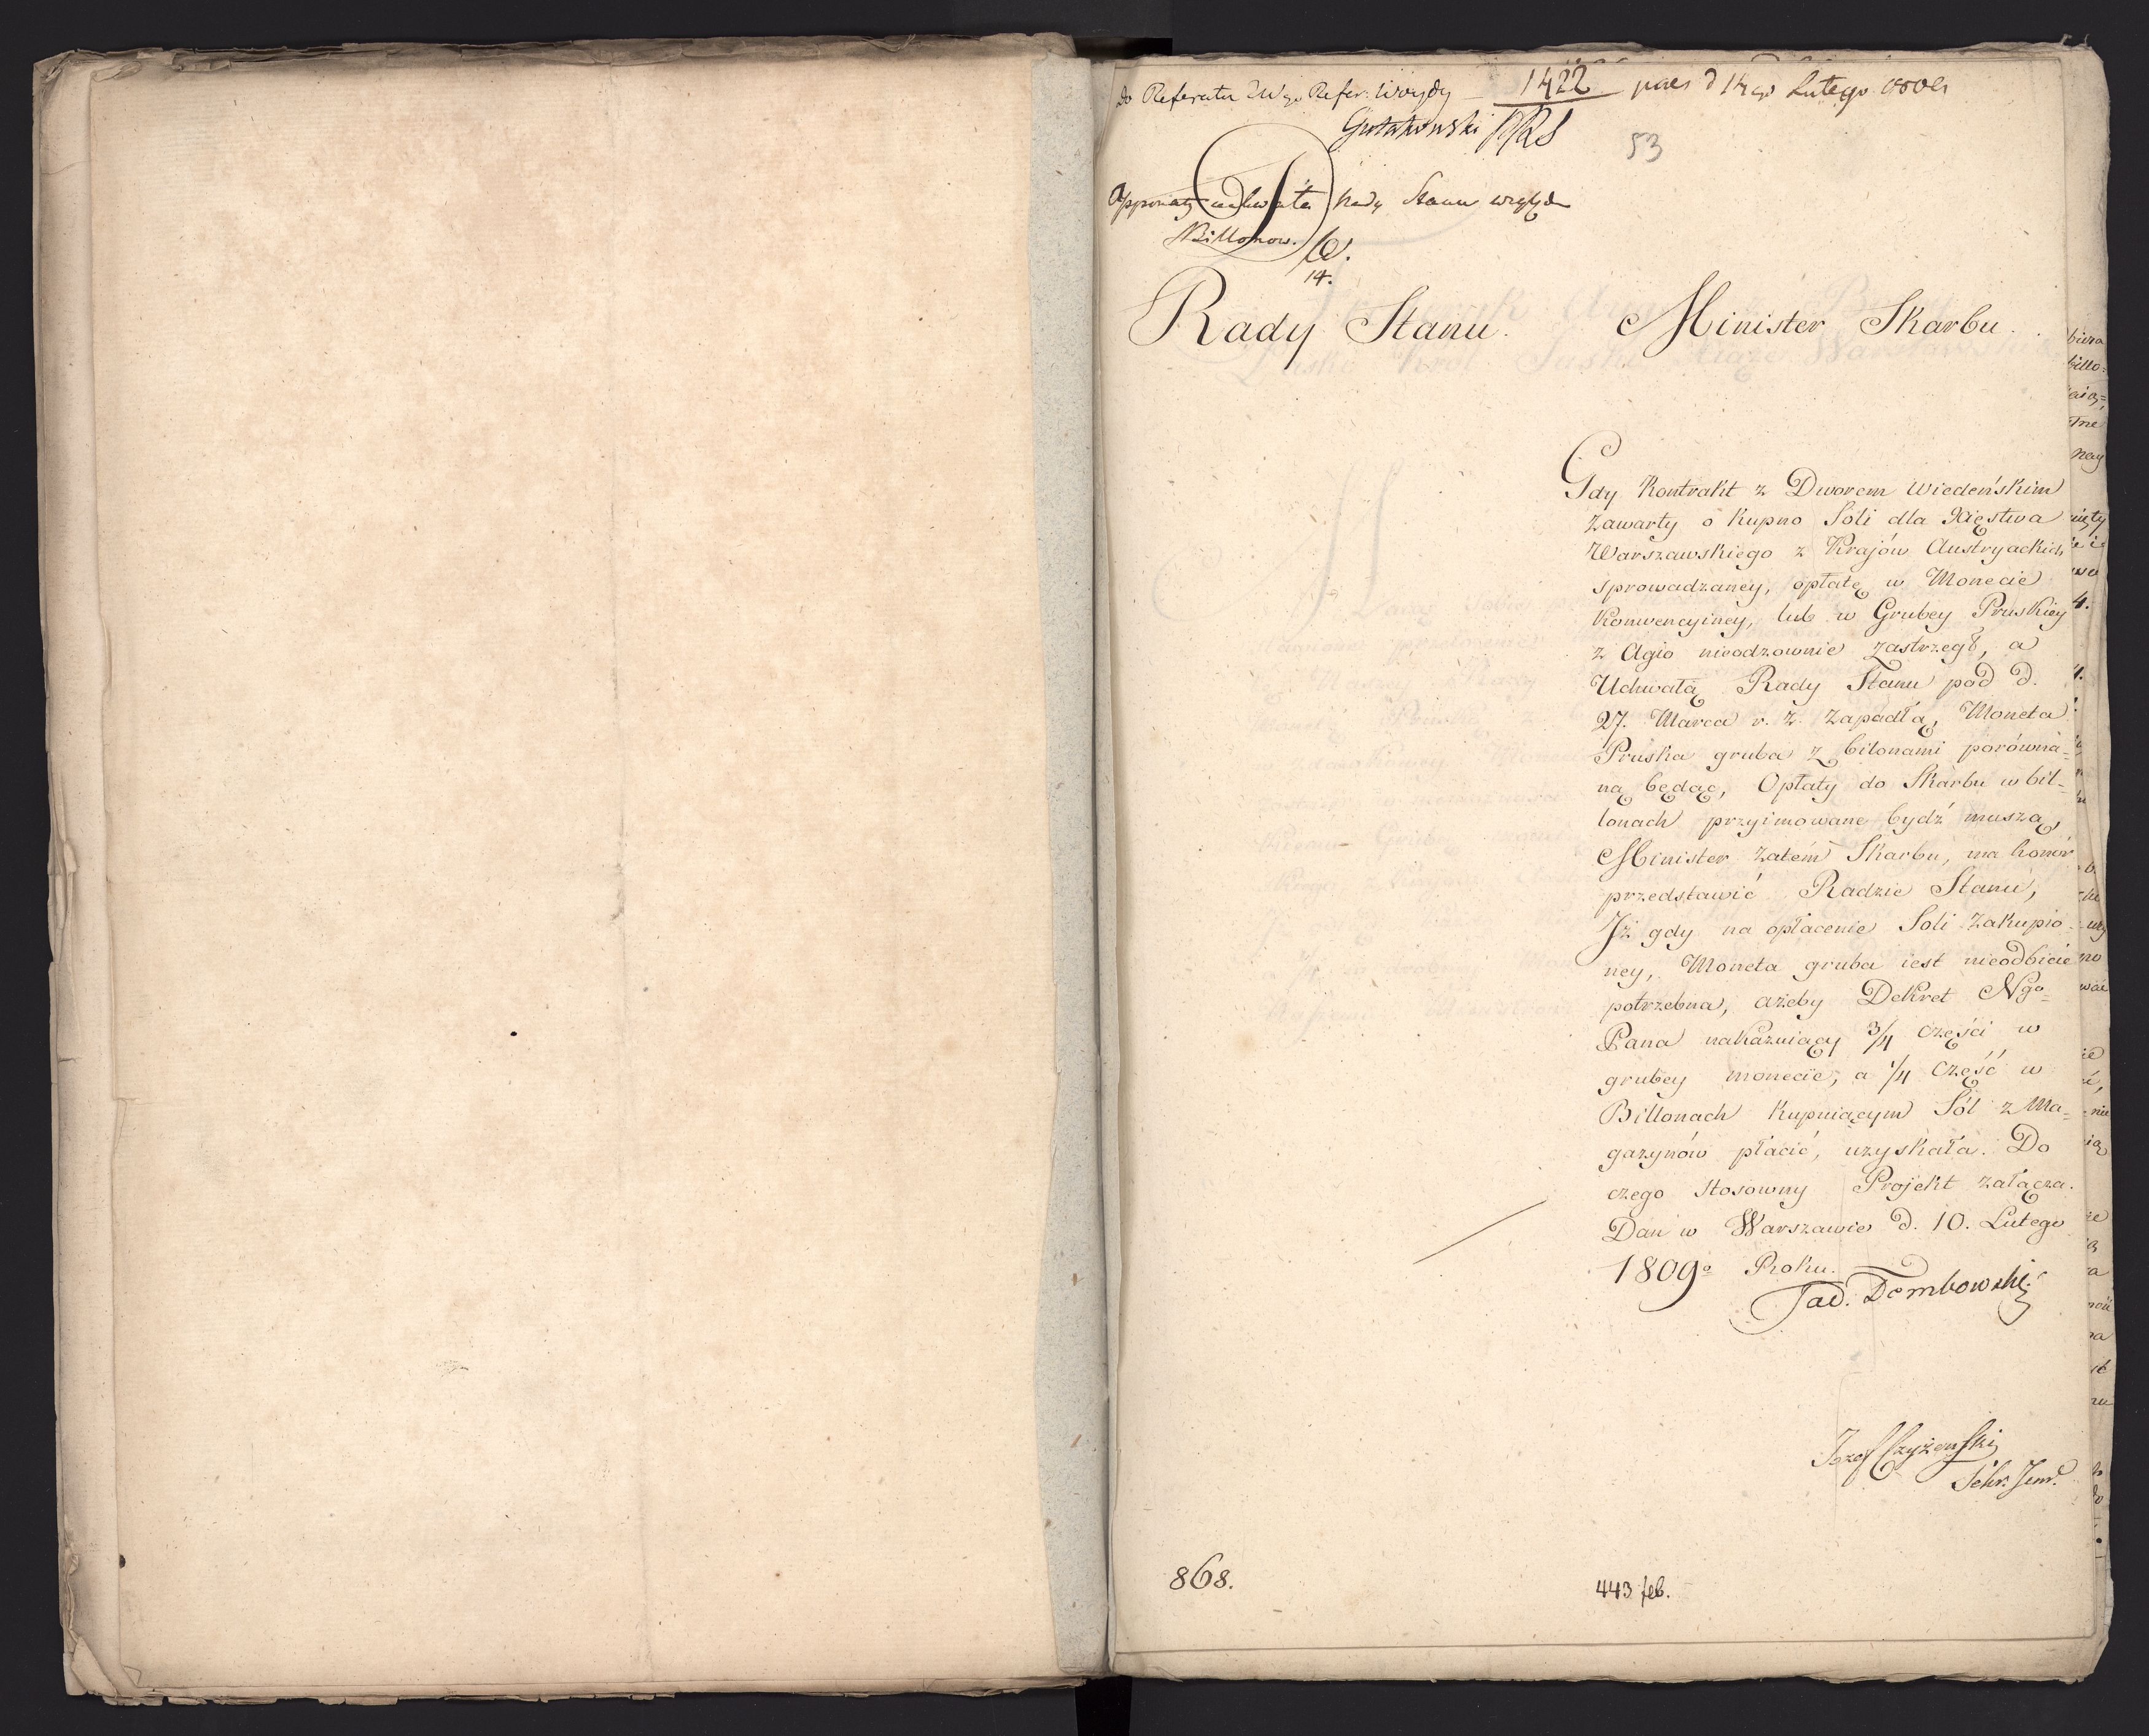 Do Referatu JWgo Refer: Woydy 1422 praes d 14 go Lutego 1809
Gutakowski PRS
53
Apponatz uchwała Rady Stanu względem
Billonow.
14.
Rady Stanu. Minister Skarbu.
Gdy Kontrakt z Dworem Wiedeńskim
zawarty o kupno Soli dla Xięstwa
Warszawskiego z Krajów Austryackich
sprowadzaney, opłatę w Monecie
Konwencyiney, lub w Grubey Pruskiey
z Agio nieodzownie zastrzegł, a
Uchwałą Rady Stanu pod d.
27. Marca r. z. zapadłą, Moneta
Pruska gruba z bilonami porówna=
ną będąc, Opłaty do Skarbu w bil-
lonach przyimowane bydź muszą,
Minister zatém Skarbu, ma honor
przedstawić Radzie Stanu,
Iż gdy na opłacenie Soli zakupio=
ney, Moneta gruba iest nieodbicie
potrzebna, ażeby Dekret Ngo=
Pana nakazuiący 3/4 części w
grubey monecie, a 1/4 część w
Billonach kupuiącym Sól z Ma=
gazynów płacić, uzyskała. Do
czego stosowny Projekt załącza.
Dan w Warszawie d. 10. Lutego
1809o Roku.
Tad. Dembowski
Józef Czyżewski
Sekr. Jenr.
868.
443 feb.